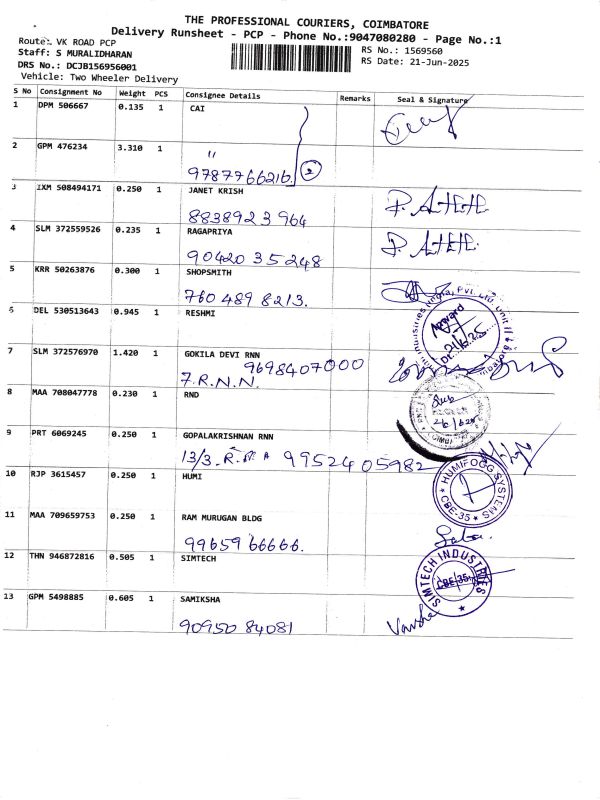 THE PROFESSIONAL COURIERS, COIMBATORE
Delivery Runsheet - PCP - Phone No.:9047080280 - Page No.:1
Route:. VK ROAD PCP
Staff: S MURALIDHARAN
RS No.: 1569560
DRS No.: DCJB156956001
RS Date: 21-Jun-2025
Vehicle: Two Wheeler Delivery
S No Consignment No Weight PCS Consignee Details Remarks Seal & Signature
1 DPM 506667 0.135 1 CAI
2 GPM 476234 3.310 1 "
9787766216. 2
3 IXM 508494171 0.250 1 JANET KRISH
8838923964
4 SLM 372559526 0.235 1 RAGAPRIYA
9042035248
5 KRR 50263876 0.300 1 SHOPSMITH
760 489 8213.
6 DEL 530513643 0.945 1 RESHMI
7 SLM 372576970 1.420 1 GOKILA DEVI RNN
9698407000
7.R.N.N.
8 MAA 708047778 0.230 1 RND
9 PRT 6069245 0.250 1 GOPALAKRISHNAN RNN
13/3. 9952405982
10 RJP 3615457 0.250 1 HUMI
HUMIFOGG SYSTEMS
CBE-35
11 MAA 709659753 0.250 1 RAM MURUGAN BLDG
9965966666.
12 THN 946872816 0.505 1 SIMTECH
SIMTECH INDUSTRIES
CBE-35
13 GPM 5498885 0.605 1 SAMIKSHA
9095084081
Varsha